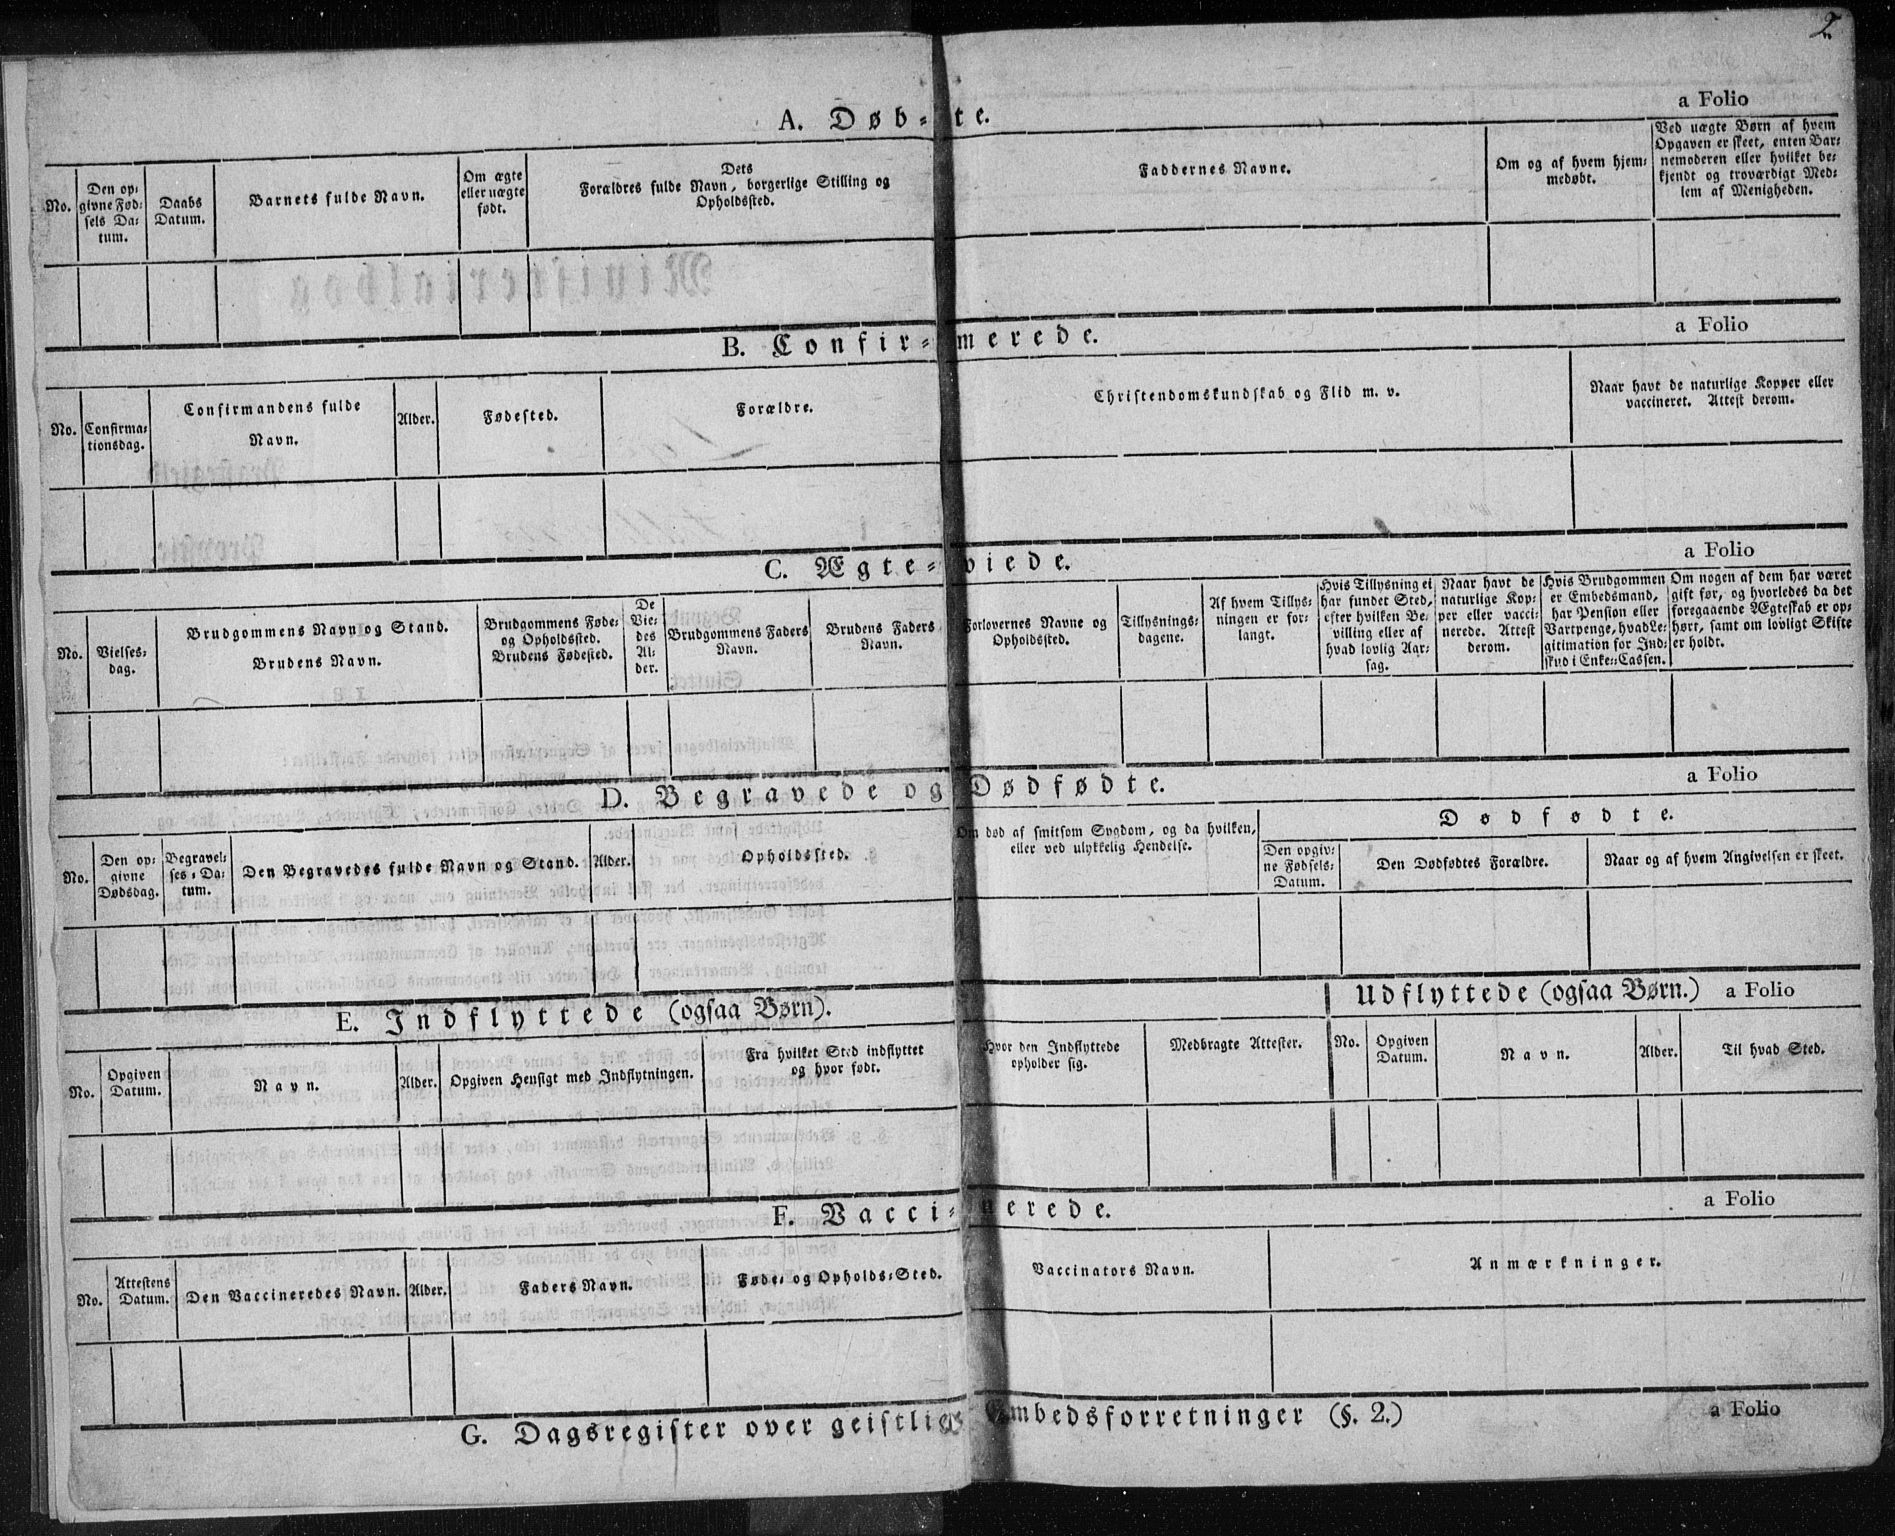 2
A. Døb-te.
a Folio
No.
Den op-
givne Fød-
sels Da-
tum.
Daabs
Datum.
Barnets fulde Navn.
Om ægte
eller uægte
født.
Dets
Forældres fulde Navn, borgerlige Stilling og
Opholdssted.
Faddernes Navne.
Om og af hvem hjem-
medøbt.
Ved uægte Børn af hvem
Opgaven er skeet, enten Bar-
nemoderen eller hvilket be-
kjendt og troværdigt Med-
lem af Menigheden.
B. Confir-merede.
a Folio
No.
Confirma-
tionsdag.
Confirmandens fulde
Navn.
Alder.
Fødested.
Forældre.
Christendomskundskab og Flid m. v.
Naar havt de naturlige Kopper eller
vaccineret. Attest derom.
C. Ægte-viede.
a Folio
No.
Vielses-
dag.
Brudgommens Navn og Stand.
Brudens Navn.
Brudgommens Føde-
og Opholdssted.
Brudens Fødested.
De
Vie-
des
Al-
der.
Brudgommens Faders
Navn.
Brudens Faders
Navn.
Forlovernes Navne og
Opholdssted.
Tillysnings-
dagene.
Af hvem Tillys-
ningen er for-
langt.
Hvis Tillysning ei
har fundet Sted,
efter hvilken Be-
villing eller af
hvad lovlig Aar-
sag.
Naar havt de
naturlige Kop-
per eller vacci-
nerede. Attest
derom.
Hvis Brudgommen
er Embedsmand,
har Pension eller
Vartpenge, hvad Le-
gitimation for Ind-
skud i Enke-Cassen.
Om nogen af dem har været
gift før, og hvorledes da det
foregaaende Ægteskab er op-
hørt, samt om lovligt Skifte
er holdt.
D. Begravede og Dødfødte.
a Folio
No.
Den op-
givne
Dødsdag.
Begravel-
ses-Da-
tum.
Den Begravedes fulde Navn og Stand.
Alder.
Opholdssted.
Om død af smitsom Sygdom, og da hvilken,
eller ved ulykkelig Hendelse.
Dødfødte.
Den opgiv-
ne Fødsels-
Datum.
Den Dødfødtes Forældre.
Naar og af hvem Angivelsen er skeet.
E. Indflyttede (ogsaa Børn).
Udflyttede (ogsaa Børn.)
a Folio
No.
Opgiven
Datum.
Navn.
Alder.
Opgiven Hensigt med Indflytningen.
Fra hvilket Sted indflyttet
og hvor født.
Hvor den Indflyttede
opholder sig.
Medbragte Attester.
No.
Opgiven
Datum.
Navn.
Alder.
Til hvad Sted.
F. Vacci-nerede.
a Folio
No.
Attestens
Datum.
Den Vaccineredes Navn.
Alder.
Faders Navn.
Føde- og Opholds-Sted.
Vaccinators Navn.
Anmærkninger.
G. Dagsregister over geistlige Embedsforretninger (§. 2.)
a Folio